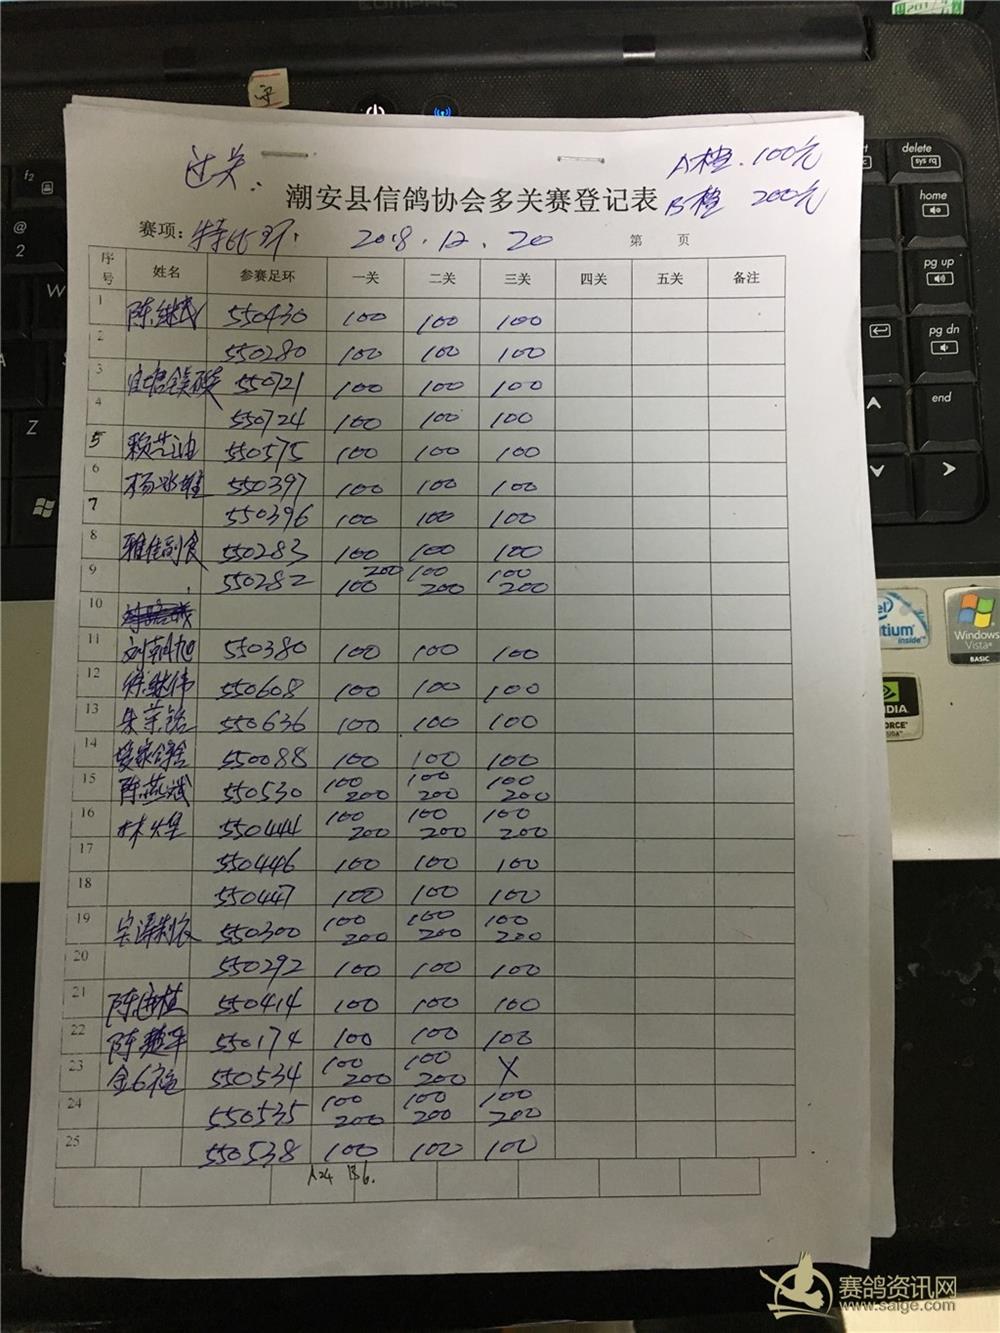 COMPAQ
delete
sys rq
home
pg up
pg dn
end
f2
@
2
W
A
Z
过关.
A档.100元
潮安县信鸽协会多关赛登记表 B档 200元
赛项: 特比环. 2018.12.20 第 页
序号 姓名 参赛足环 一关 二关 三关 四关 五关 备注
1 陈继武 550430 100 100 100
2 550280 100 100 100
3 550721 100 100 100
4 550724 100 100 100
5 赖芝油 550575 100 100 100
6 杨冰雄 550397 100 100 100
7 550396 100 100 100
8 雅佳副食 550283 100 100 100
9 550282 100 200 100 200 100 200
10
11 刘朝旭 550380 100 100 100
12 继伟 550608 100 100 100
13 朱荣铭 550636 100 100 100
14 爱家鸽舍 550088 100 100 100
15 陈燕斌 550530 100 200 100 200 100 200
16 林煌 550444 100 200 100 200 100 200
17 550446 100 100 100
18 550447 100 100 100
19 宝涛制衣 550300 100 200 100 200 100 200
20 550292 100 100 100
21 陈 植 550414 100 100 100
22 陈楚平 550174 100 100 100
23 金6福 550534 100 200 100 200 X
24 550535 100 200 100 200 100 200
25 550538 100 100 100
A24 B6.
Windows Vista
BASIC
inside
赛鸽资讯网
www.saige.com